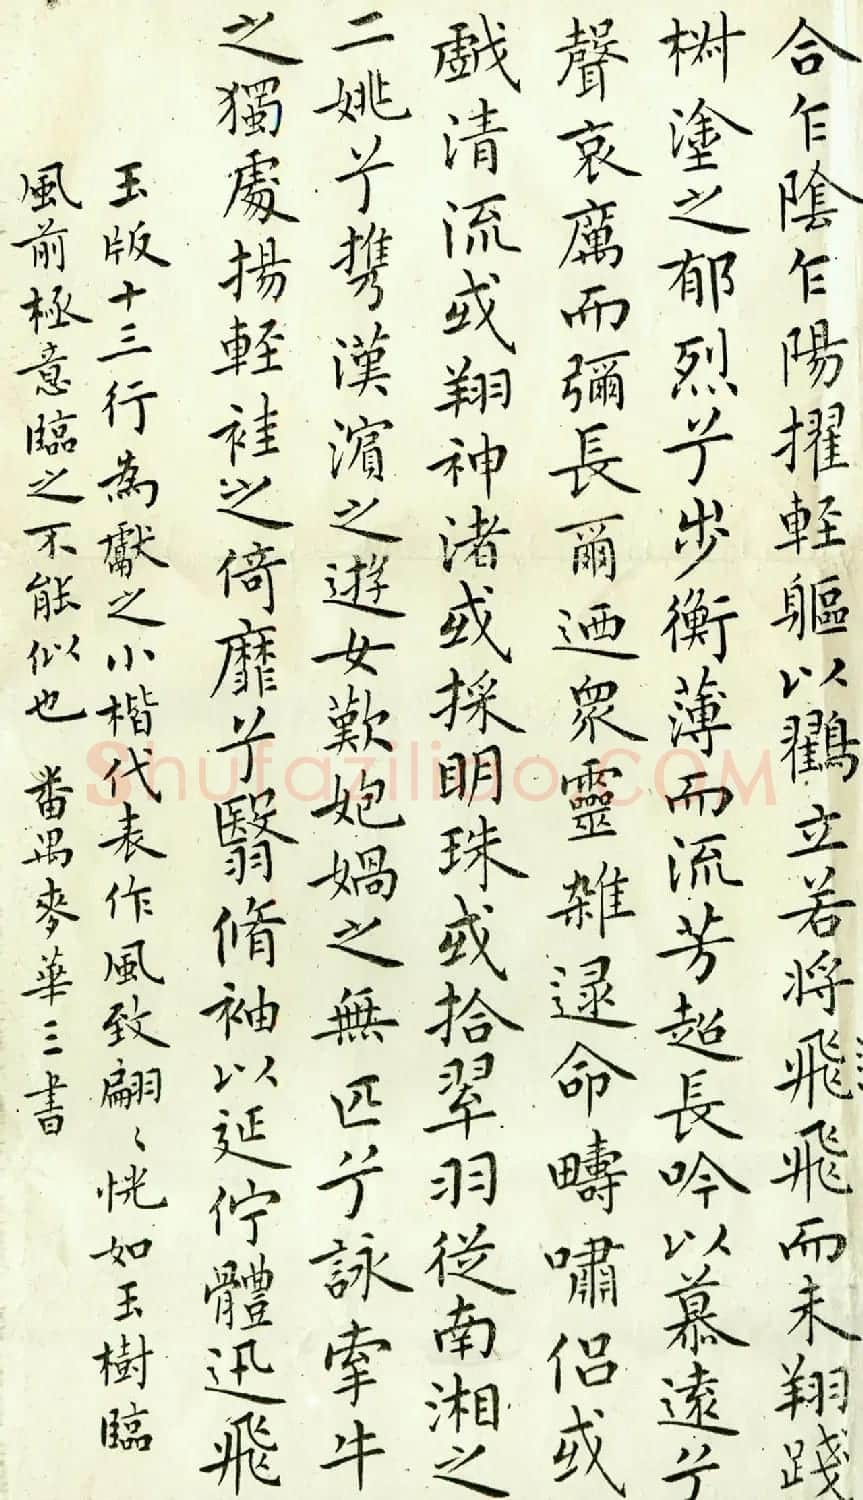 合乍陰乍陽擢軽軀以鸖立若將飛飛而未翔踐
椒塗之郁烈兮步衡薄而流芳超長吟以慕遠兮
聲哀厲而彌長爾迺衆靈雜遝命疇嘯侣或
戲清流或翔神渚或採明珠或拾翠羽從南湘之
二姚兮攜漢濱之遊女歎匏媧之無匹兮詠牽牛
之獨處揚軽袿之倚靡兮翳脩袖以延佇體迅飛
玉版十三行為獻之小楷代表作風致翩々恍如玉樹臨
風前極意臨之不能似也 番禺麥華三書
Shufaziliao.COM